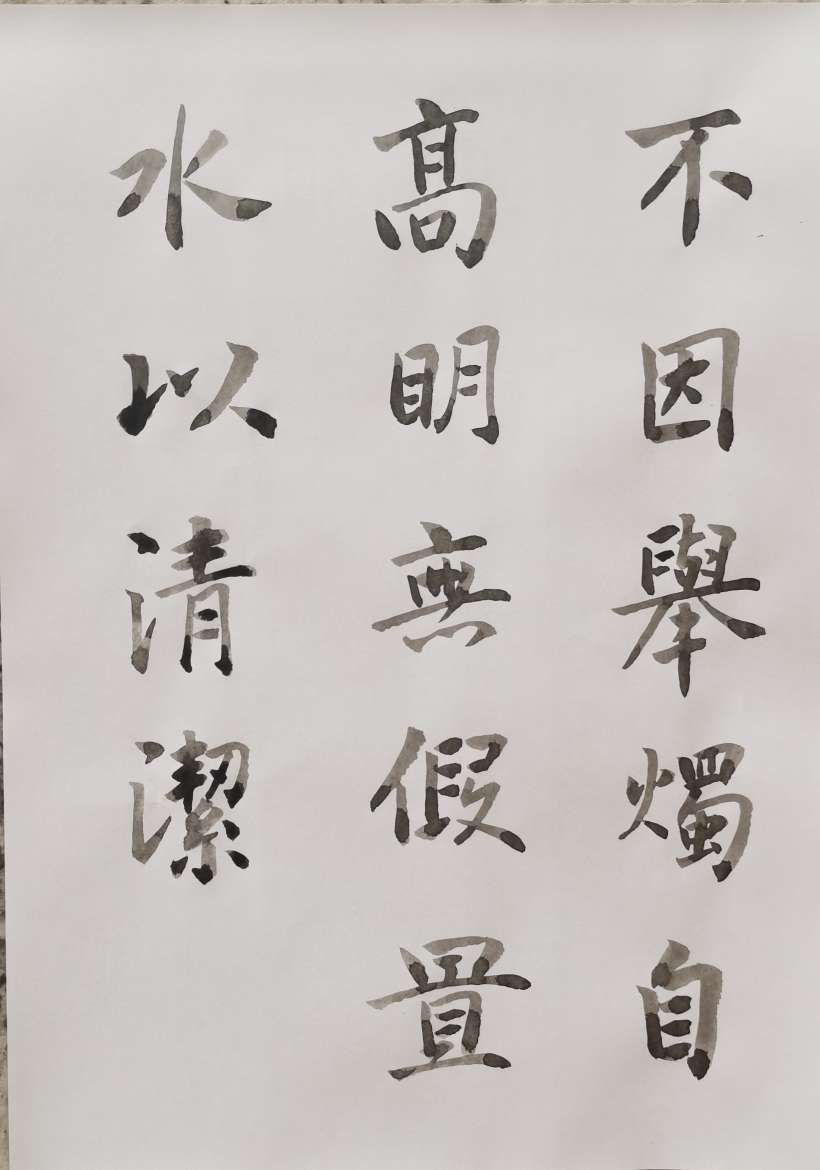 不因舉燭自
高明無假置
水以清潔